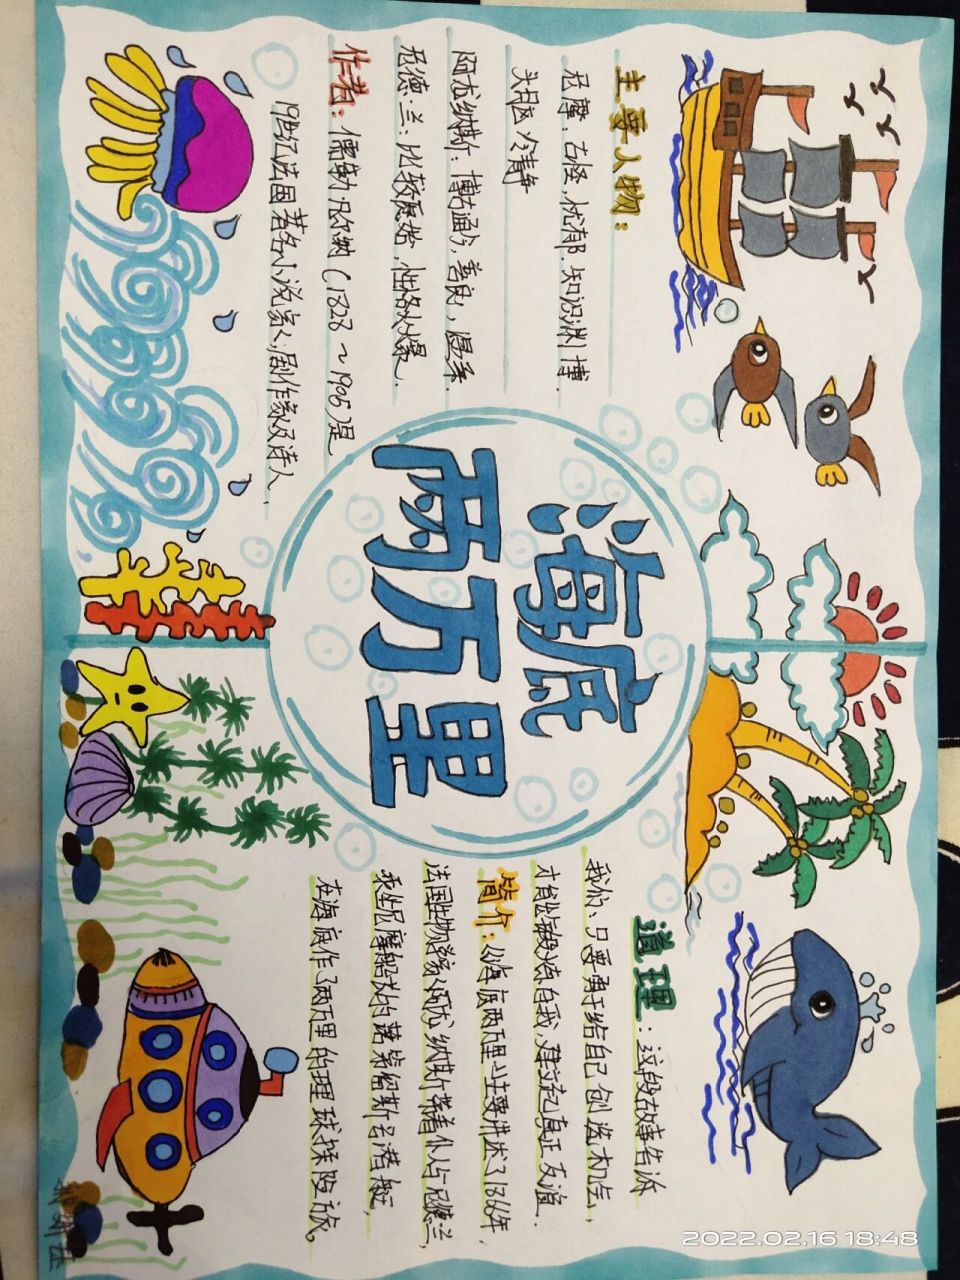 海底
两万里
主要人物：
尼摩：古怪，忧郁，知识渊博，
头脑冷静
阿龙纳斯：博古通今，善良，温柔
尼德·兰：比较原始，性格火爆.
作者：儒勒·凡尔纳（1828～1905）是
19世纪法国著名小说家，剧作家及诗人.
道理：这段故事告诉
我们：只要勇于给自己创造机会，
才能锻炼自我，建立起真正友谊.
简介：《海底两万里》主要讲述了1866年，
法国生物学家阿龙纳斯带着仆人与尼德兰，
乘坐尼摩船长的
在海底作了两万里的环球探险旅。
2022.02.16 18:48